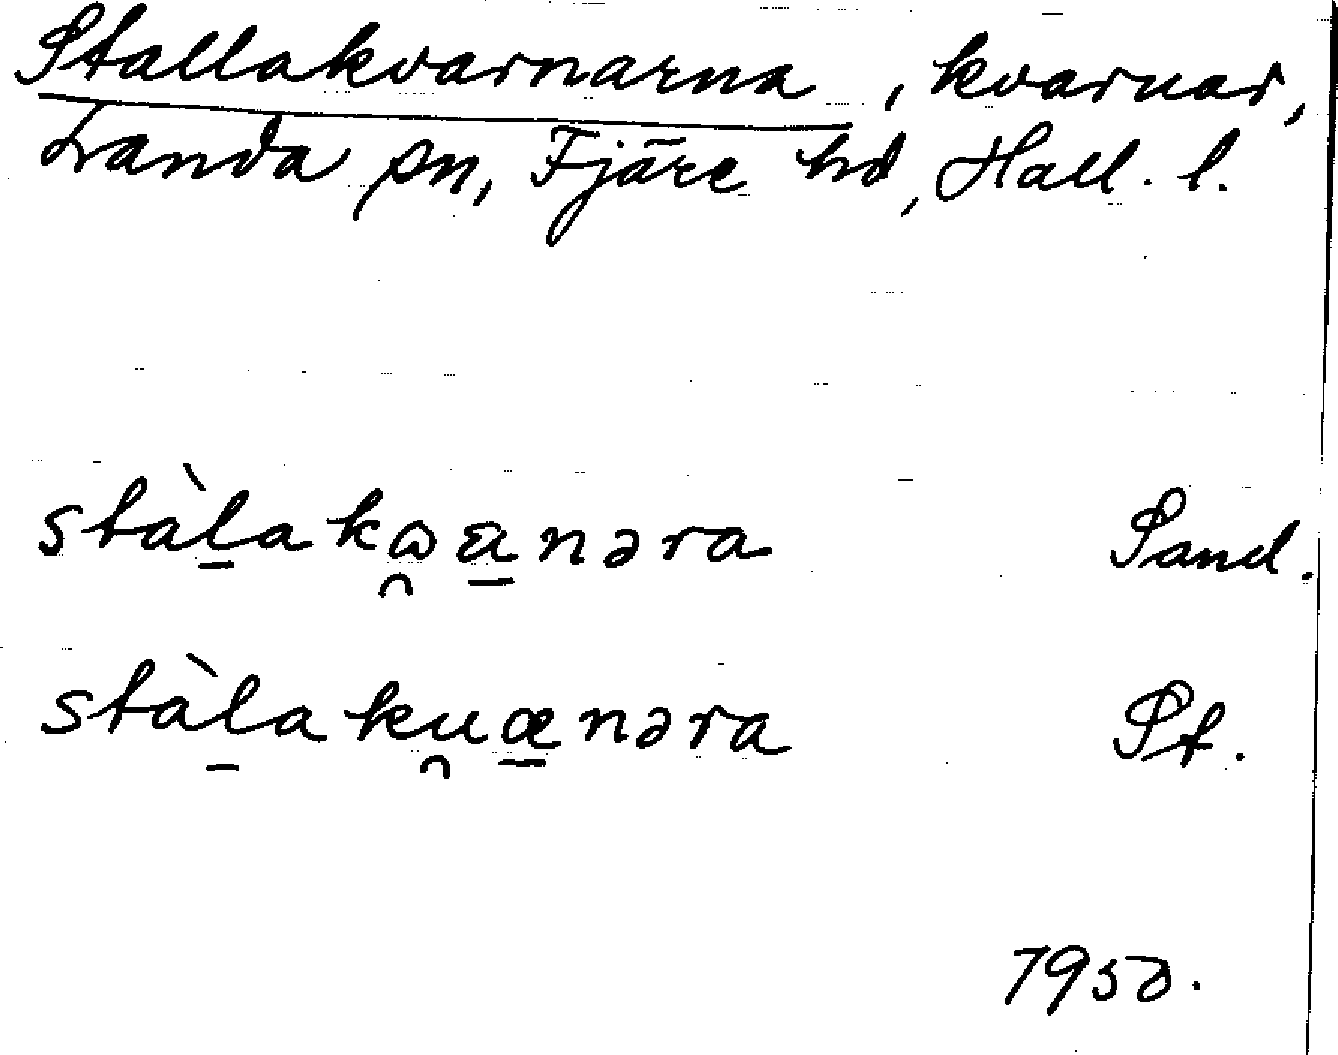 Stallakvarnarna, kvarnar,
Landa sn, Fjäre hd, Hall. l.
stàl̠akω̯a̠nəra Sand.
stàl̠aku̯æ̠nəra St.
1950.